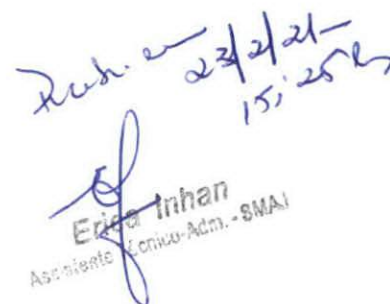 Recebi em 23/2/21
15:25 h
Erica Inhan
Assistente Técnico-Adm. - SMAJ